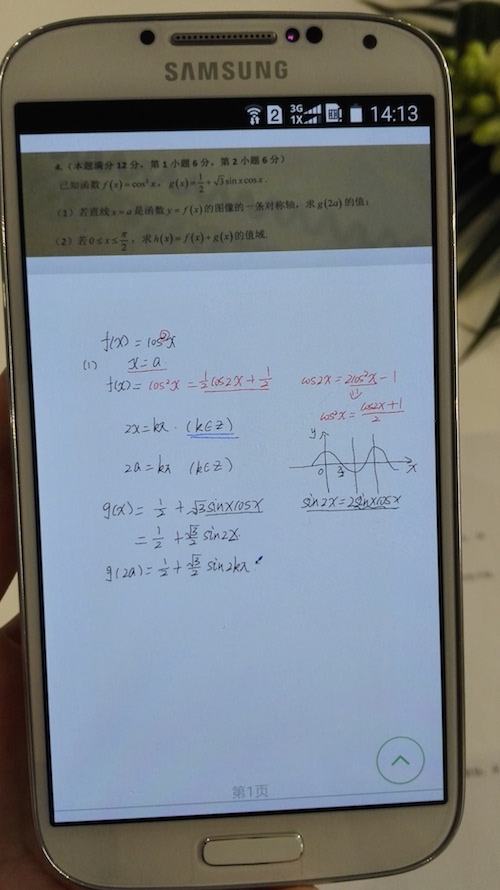 SAMSUNG
2 3G 1X 14:13
4.(本题满分12分,第1小题6分,第2小题6分)
已知函数 f(x)=cos²x, g(x)=1/2+√3sinxcosx.
(1)若直线x=a是函数y=f(x)的图像的一条对称轴,求g(2a)的值;
(2)若0≤x≤π/2,求h(x)=f(x)+g(x)的值域.
f(x)=cos²x
(1) x=a
f(x)=cos²x=1/2cos2x+1/2
cos2x=2cos²x-1
cos²x=cos2x+1/2
2x=kπ. (k∈Z)
2a=kπ (k∈Z)
y
0 π/2 x
g(x)=1/2+√3sinxcosx
sin2x=2sinxcosx
=1/2+√3/2sin2x.
g(2a)=1/2+√3/2sin2kπ
第1页